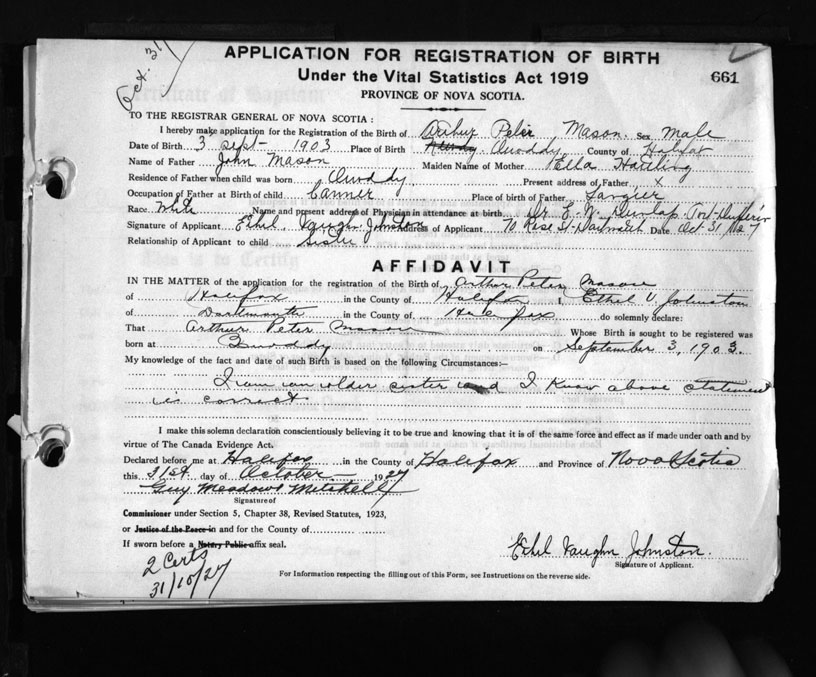 Oct. 31/
APPLICATION FOR REGISTRATION OF BIRTH
Under the Vital Statistics Act 1919
661
PROVINCE OF NOVA SCOTIA.
TO THE REGISTRAR GENERAL OF NOVA SCOTIA:
I hereby make application for the Registration of the Birth of Arthur Peter Mason Sex Male
Date of Birth 3 Sept- 1903 Place of Birth Quoddy County of Halifax
Name of Father John Mason Maiden Name of Mother Ella
Residence of Father when child was born Quoddy Present address of Father x
Occupation of Father at Birth of child Canner Place of birth of Father Tangier
Race White Name and present address of Physician in attendance at birth Dr. E. N. Dunlap Port-Dufferin
Signature of Applicant Ethel Vaughn Johnston Address of Applicant 70 Rose St- Dartmouth Date Oct 31
Relationship of Applicant to child Sister
AFFIDAVIT
IN THE MATTER of the application for the registration of the Birth of Arthur Peter Mason
of Halifax in the County of Halifax I, Ethel V. Johnston
of Dartmouth in the County of Halifax do solemnly declare:
That Arthur Peter Mason Whose Birth is sought to be registered was
born at Quoddy on September 3, 1903.
My knowledge of the fact and date of such Birth is based on the following Circumstances:—
I am an older sister and I know above statement
is correct
I make this solemn declaration conscientiously believing it to be true and knowing that it is of the same force and effect as if made under oath and by
virtue of The Canada Evidence Act.
Declared before me at Halifax in the County of Halifax and Province of Nova Scotia
this 31st day of October 1927
Guy Meadows Mitchell
Signature of
Commissioner under Section 5, Chapter 38, Revised Statutes, 1923,
or Justice of the Peace in and for the County of
If sworn before a Notary Public affix seal.
Ethel Vaughn Johnston.
Signature of Applicant.
2 Certs
31/10/27
For Information respecting the filling out of this Form, see Instructions on the reverse side.